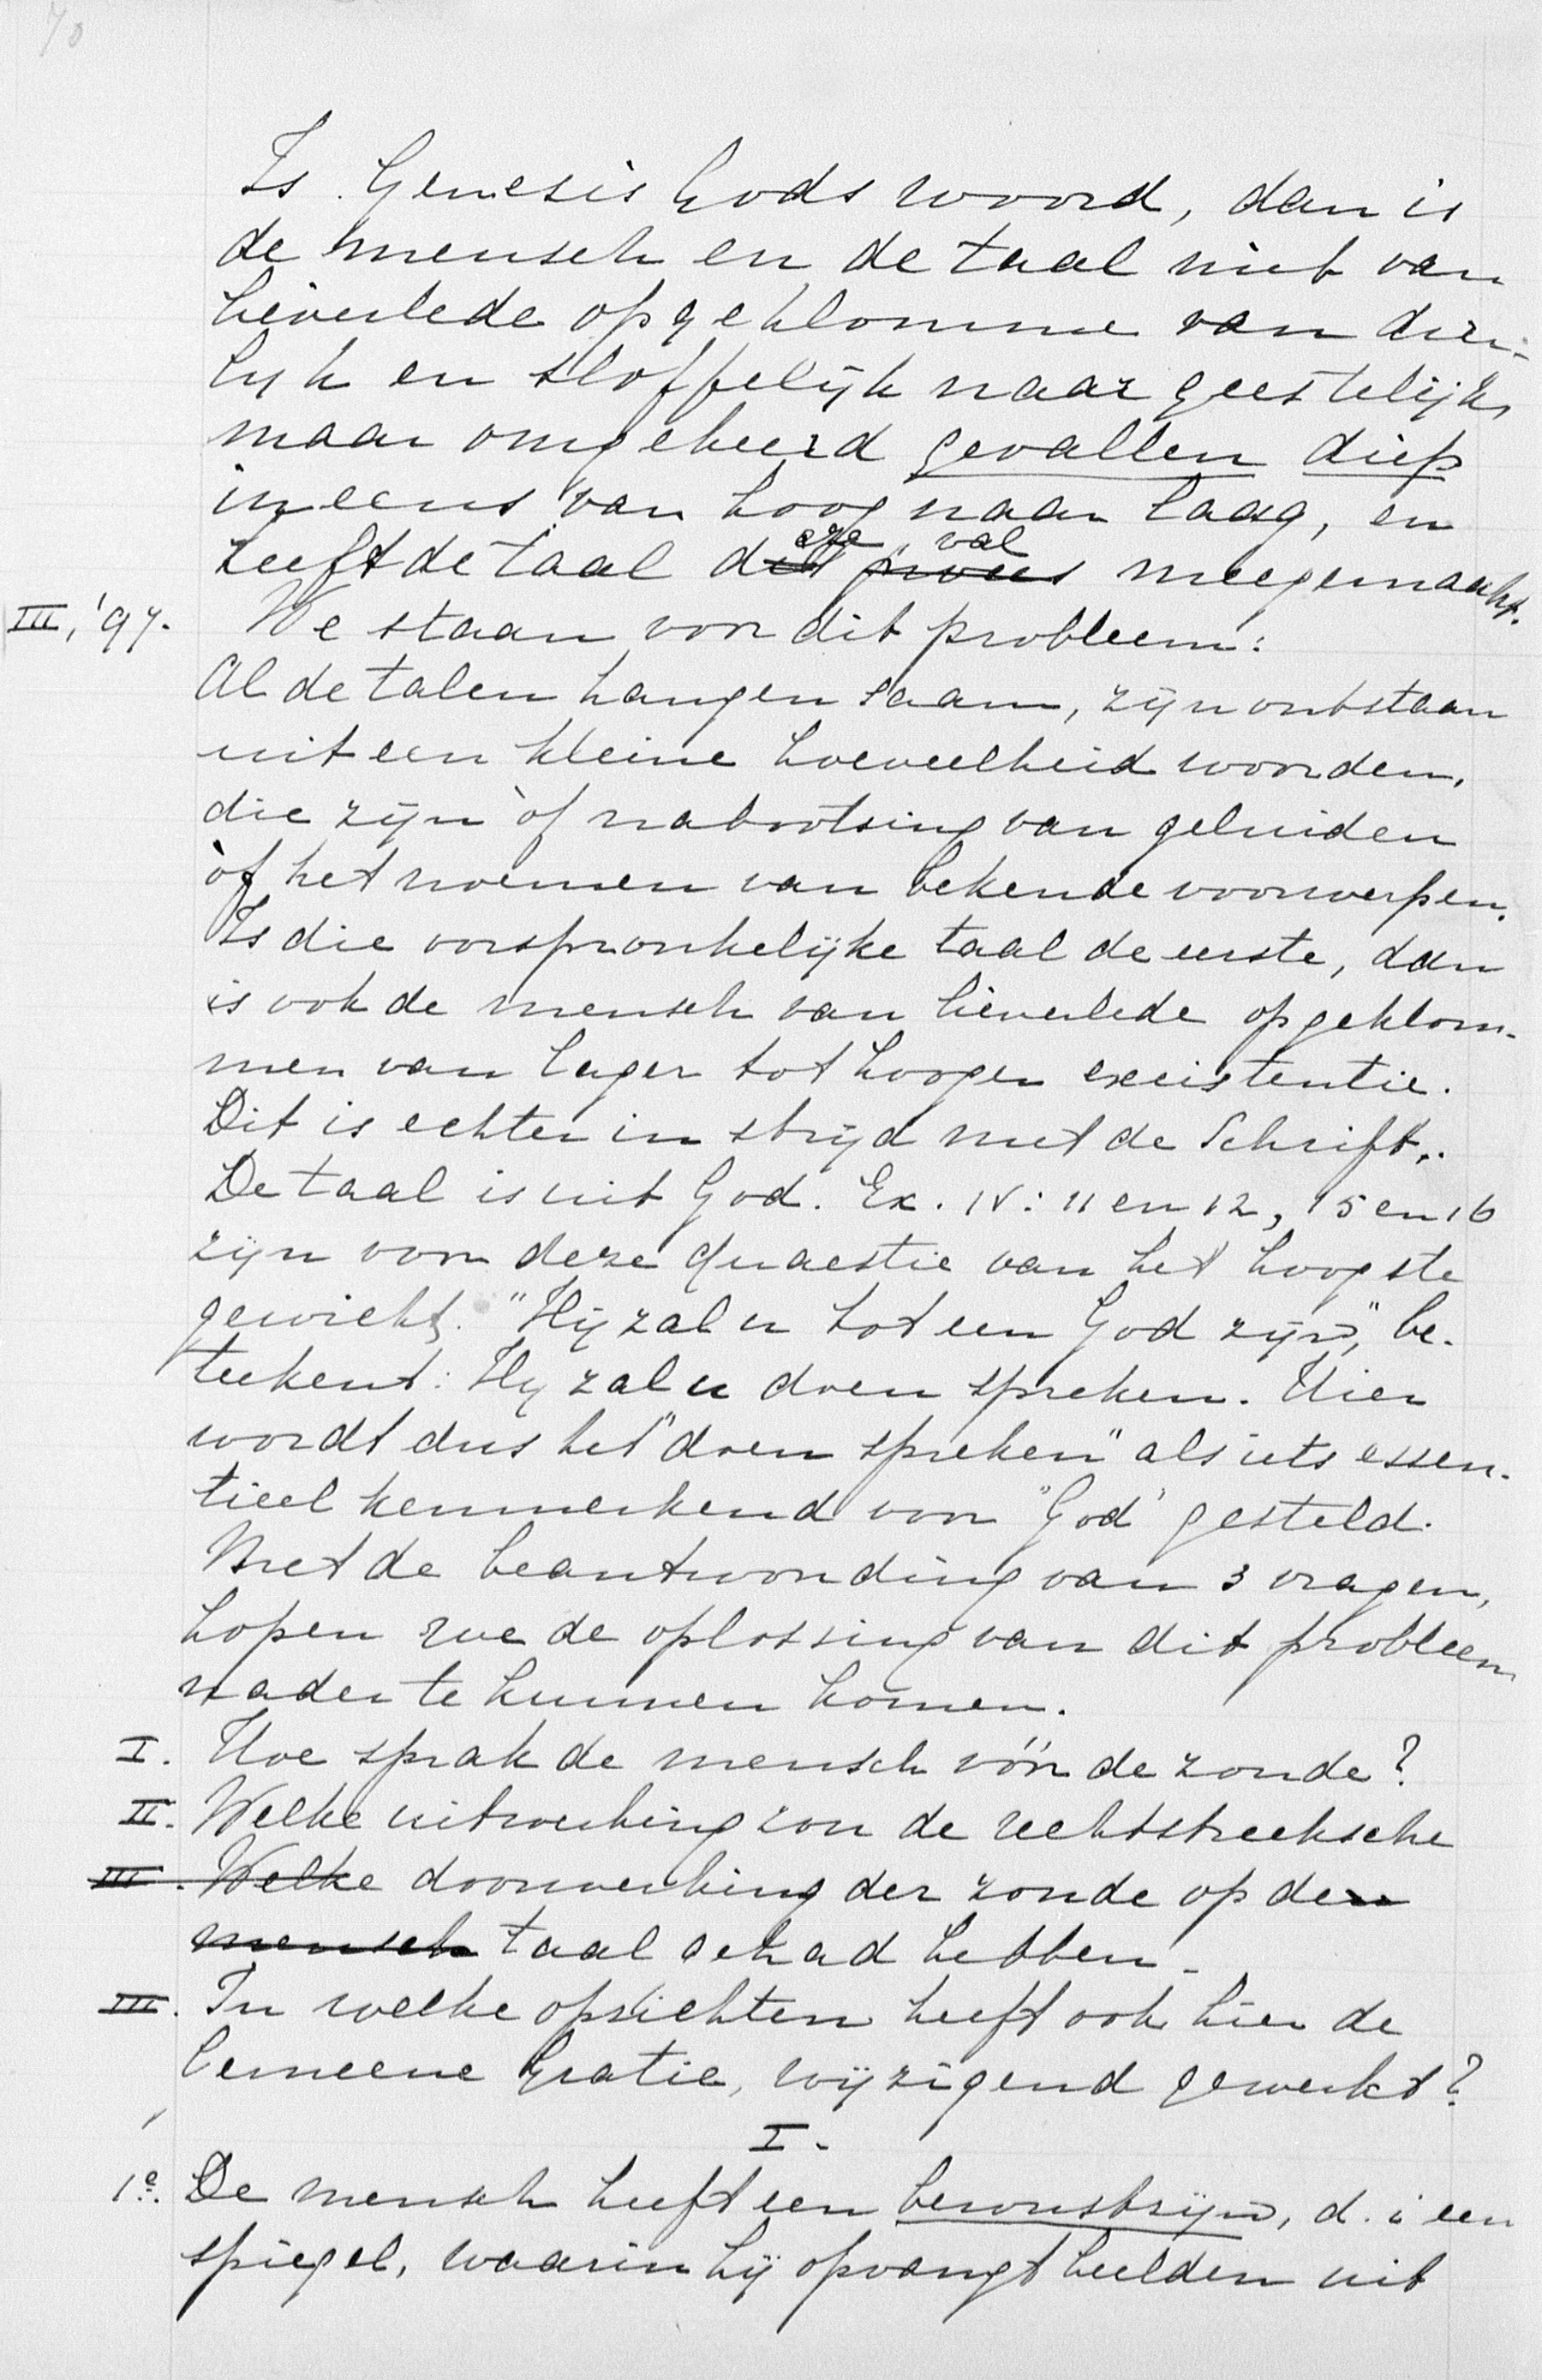 70
Is Genesis Gods woord, dan is
de mensch en de taal niet van
lieverlede opgeklomme van dier-
lijk en stoffelijk naar geestelijk,
maar omgekeerd gevallen diep
ineens van hoog naar laag, en
heeft de taal deze val meegemaakt.
III, '97. We staan voor dit probleem:
Al de talen hangen saam, zijn ontstaan
uit een kleine hoeveelheid woorden,
die zijn òf nabootsing van geluiden
òf het noemen van bekende voorwerpen.
Is die oorspronkelijke taal de eerste, dan
is ook de mensch van lieverlede opgeklom-
men van lager tot hooger existentie.
Dit is echter in strijd met de Schrift.
De taal is uit God. Ex. IV: 11 en 12, 15 en 16
zijn voor deze quaestie van het hoogste
gewicht. "Hij zal u tot een God zijn", be-
teekent: Hij zal u doen spreken. Hier
wordt dus het "doen spreken" als iets essen-
tieel kenmerkend voor "God" gesteld.
Met de beantwoording van 3 vragen,
hopen we de oplossing van dit probleem
nader te kunnen komen.
I. Hoe sprak de mensch vóór de zonde?
II. Welke uitwerking zou de rechtstreeksche
III. Welke doorwerking der zonde op den
mensch taal gehad hebben.
III. In welke opzichten heeft ook hier de
Gemeene Gratie, wijzigend gewerkt?
I.
1e. De mensch heeft een bewustzijn, d. i een
spiegel, waarin hij opvangt beelden uit